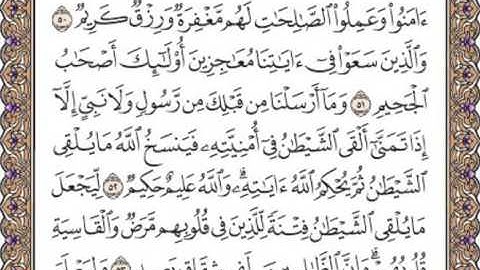 ءَامَنُوا۟ وَعَمِلُوا۟ ٱلصَّٰلِحَٰتِ لَهُم مَّغْفِرَةٌ وَرِزْقٌ كَرِيمٌ ٥٠
وَٱلَّذِينَ سَعَوْا۟ فِىٓ ءَايَٰتِنَا مُعَٰجِزِينَ أُو۟لَٰٓئِكَ أَصْحَٰبُ
ٱلْجَحِيمِ ٥١ وَمَآ أَرْسَلْنَا مِن قَبْلِكَ مِن رَّسُولٍ وَلَا نَبِىٍّ إِلَّآ
إِذَا تَمَنَّىٰٓ أَلْقَى ٱلشَّيْطَٰنُ فِىٓ أُمْنِيَّتِهِۦ فَيَنسَخُ ٱللَّهُ مَا يُلْقِى
ٱلشَّيْطَٰنُ ثُمَّ يُحْكِمُ ٱللَّهُ ءَايَٰتِهِۦ ۗ وَٱللَّهُ عَلِيمٌ حَكِيمٌ ٥٢ لِّيَجْعَلَ
مَا يُلْقِى ٱلشَّيْطَٰنُ فِتْنَةً لِّلَّذِينَ فِى قُلُوبِهِم مَّرَضٌ وَٱلْقَاسِيَةِ